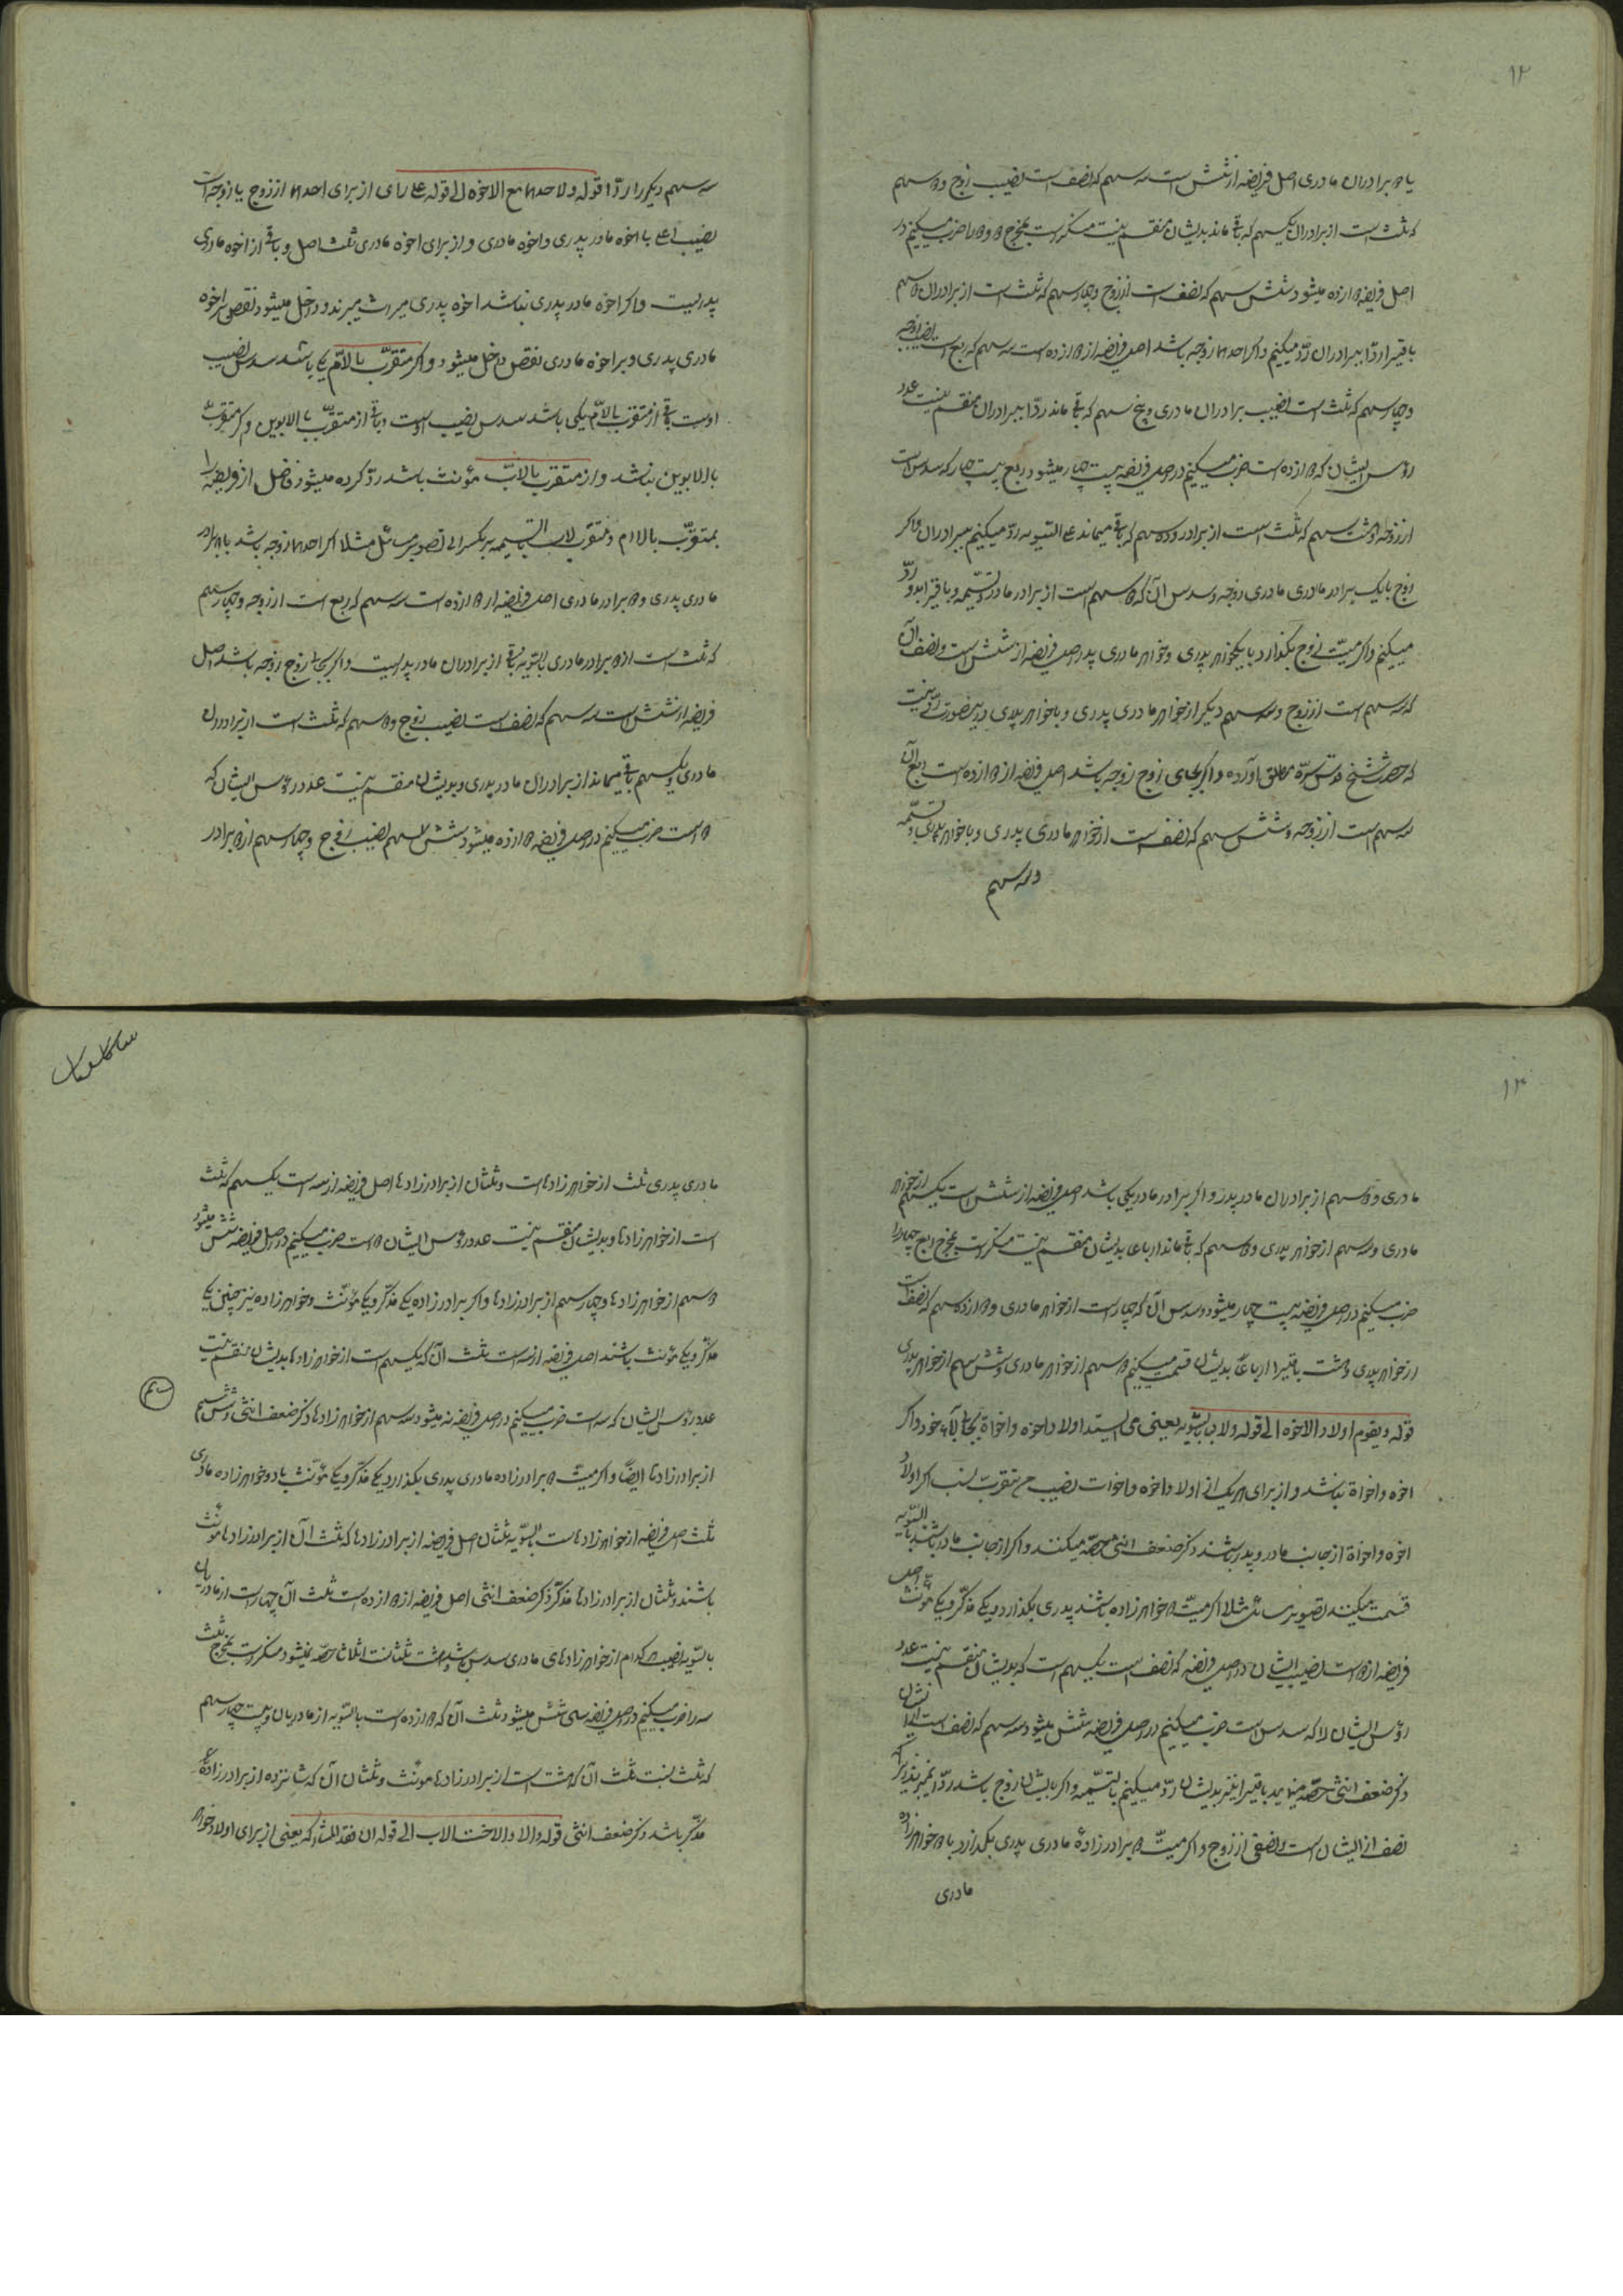 ۱۲
یا ۲ برادران مادری اصل فریضه از شش است سه سهم که نصف است نصیب زوج و ۲ سهم
که ثلث است از برادران یکسهم که باقی ماند بدیشان منقسم نیست منکر است بمخرج ۲ و ۲ را ضرب میکنیم در
اصل فریضه ۲ ازده میشود شش سهم که نصف است از زوج و چهار سهم که ثلث است از برادران ۲ سهم
باقیرا ردّا ببرادران ردّ میکنیم و اگر احدهما زوجه باشد اصل فریضه از ۲ ازده است سه سهم که ربع است نصیب زوجه
و چهار سهم که ثلث است نصیب برادران مادری و پنج سهم که باقی ماند ردّا ببرادران منقسم نیست عدد
رؤس ایشان که ۲ ازده است ضرب میکنیم در اصل فریضه بیست چهار میشود ربع بیست چهار که سدس است
از زوجه و هشت سهم که ثلث است از برادر و ده سهم که باقی میماند علی التسویه ردّ میکنیم ببرادران و اگر
زوج با یک برادر مادری مادری زوجه و سدس آن که ۲ سهم است از برادر مادر تسمیه و باقیرا بدو ردّ
میکنیم و اگر میّت زوج بگذارد با یکخواهر پدری و خواهر مادری پدر اصل فریضه از شش است و نصف آن
که سه سهم است از زوج و سه سهم دیگر از خواهر مادری پدری و با خواهر پدری درینصورت ردّ نیست
که حضرت شیخ قدس سرّه مطلق آورده و اگر بجای زوج زوجه باشد اصل فریضه از ۲ ازده است ربع آن
سه سهم است از زوجه و شش سهم که نصف است از خواهر مادری پدری و با خواهر پدری تسمیه
و سه سهم
سه سهم دیگر را ردّا قوله و لاحدهما مع الاخوه الی قوله علی رای از برای احدهما از زوج یا زوجه است
نصیب اعلی با اخوه مادر پدری و اخوه مادری و از برای اخوه مادری ثلث اصل و باقی از اخوه مادری
پدریست و اگر اخوه مادر پدری نباشد اخوه پدری میراث میبرند و داخل میشود نقص بر اخوه
مادری پدری و بر اخوه مادری نقص داخل میشود و اگر متقرّب بالامّ یکی باشد سدس نصیب
اوست باقی از متقرب بالامّ یکی باشد سدس نصیب اوست و باقی از متقرّب بالابوین و اگر متقرّب
بالابوین نباشد و از متقرب بالابّ مؤنث باشد ردّ کرده میشود فاضل از فریضه را
بمتقرّب بالام و متقرّب لاب بالتسمیه بر یکسر الی تصویر مسائل مثلا اگر احدهما زوجه باشد با ۲ برادر
مادری پدری و ۲ برادر مادری اصل فریضه از ۲ ازده است سه سهم که ربع است از زوجه و چهار سهم
که ثلث است از ۲ برادر مادری بالسّویه باقی از برادران مادر پدریست و اگر بجای زوج زوجه باشد اصل
فریضه از شش است سه سهم که نصف است نصیب زوج و ۲ سهم که ثلث است از برادران
مادری و یکسهم باقی میماند از برادران مادر پدری و بدیشان منقسم نیست عدد رؤس ایشان که
۲ است ضرب میکنیم در اصل فریضه ۲ ازده میشود شش سهم نصیب زوج و چهار سهم از ۲ برادر
۱۳
مادری و ۲ سهم از برادران مادر پدر و اگر برادر مادر یکی باشد اصل فریضه از شش است یکسهم از خواهر
مادری و سه سهم از خواهر پدری و ۲ سهم که باقی ماند ارباعا بدیشان منقسم نیست منکر است بمخرج ربع چهار را
ضرب میکنیم در اصل فریضه بیست چهار میشود و سدس آن که چهار است از خواهر مادری و ۲ ازده سهم که نصف است
از خواهر پدری و هشت باقیرا ارباعاً بدیشان قسمت میکنیم ۲ سهم از خواهر مادری و شش سهم از خواهر پدری
قوله و یقوم اولاد الاخوه الی قوله و لاب بالسّویه یعنی می ایستد اولاد اخوه و اخواة بجای آباء خود و اگر
اخوه و اخواة نباشد و از برای هر یک از اولاد اخوه و اخوات نصیب من یتقرب بنسب اگر اولاد
اخوه و اخواة از جانب مادر و پدر باشند ذکر ضعف انثی حصّه میکنند و اگر از جانب مادر باشند بالسّویه
قسمت میکنند تصویر مسائل مثلا اگر میّت ۲ خواهر زاده باشند پدری بگذارد یکی مذکّر و یکی مؤنث اصل
فریضه از ۲ است نصیب ایشان در اصل فریضه که نصف است یکسهم است که بدیشان منقسم نیست عدد
رؤس ایشان را که سدس است ضرب میکنیم در اصل فریضه شش میشود سه سهم که نصف است ایشان
ذکر ضعف انثی حصّه مینماید باقیرا نیز بدیشان ردّ میکنیم بالتسمیّه و اگر بایشان زوج باشد ردّا نمیرند
نصف از ایشان است و نصفی از زوج و اگر میتّ ۲ برادر زادهٔ مادری پدری بگذارد با ۲ خواهر زاده
مادری
مادری پدری ثلث از خواهر زادهاست و ثلثان از برادر زادها اصل فریضه از سه است یکسهم که ثلث
است از خواهر زادها و بدیشان منقسم نیست عدد رؤس ایشان ۲ است ضرب میکنیم در اصل فریضه شش میشود
۲ سهم از خواهر زادها و چهار سهم از برادر زادها و اگر برادر زاده یکی مذکّر و یکی مؤنّث و خواهر زاده نیز چنین یکی
مذکّر و یکی مؤنث باشند اصل فریضه از سه است ثلث آن که یکسهم است از خواهر زادها بدیشان منقسم نیست
عدد رؤس ایشان که سه است ضرب میکنیم در اصل فریضه نه میشود سه سهم از خواهر زادها ذکر ضعف انثی و شش سهم
از برادر زادها ایضاً و اگر میتّ ۲ برادر زاده مادری پدری بگذارد یکی مذکّر و یکی مؤنّث با دو خواهر زاده مادری
ثلث اصل فریضه از خواهر زادهاست بالسّویه ثلثان اصل فریضه از برادر زادها که ثلث آن از برادر زادها مؤنث
باشند و ثلثان از برادر زادها مذکّر ذکر ضعف انثی اصل فریضه از ۲ ازده است ثلث آن چهار است از مادریان
بالسّویه نصیب هر کدام از خواهر زادهای مادری سدس باشد و هشت ثلثانست اثلاثا حصّه نمیشود منکر است بمخرج ثلث
سه را ضرب میکنیم در اصل فریضه سی شش میشود ثلث آن که ۲ ازده است بالسّویه از مادریان و بیست چهار سهم
که ثلث بنت ثلث آن که هشت است از برادر زادها مؤنث و ثلثان آن که شانزده از برادر زادهٔ
مذکّر باشد ذکر ضعف انثی قوله والا و الاخت الاب الی قوله ان فقد المشارکه یعنی از برای اولاد خواهر